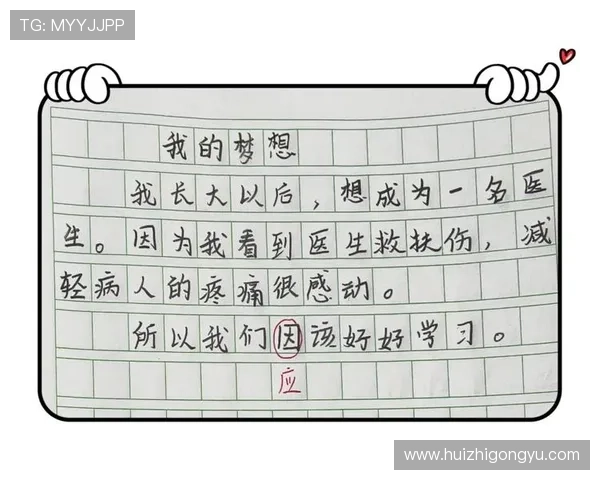 TG: MYYJJPP
我的梦想
我长大以后，想成为一名医
生。因为我看到医生救扶伤，减
轻病人的疼痛很感动。
所以我们因该好好学习。
应
www.huizhigongyu.com